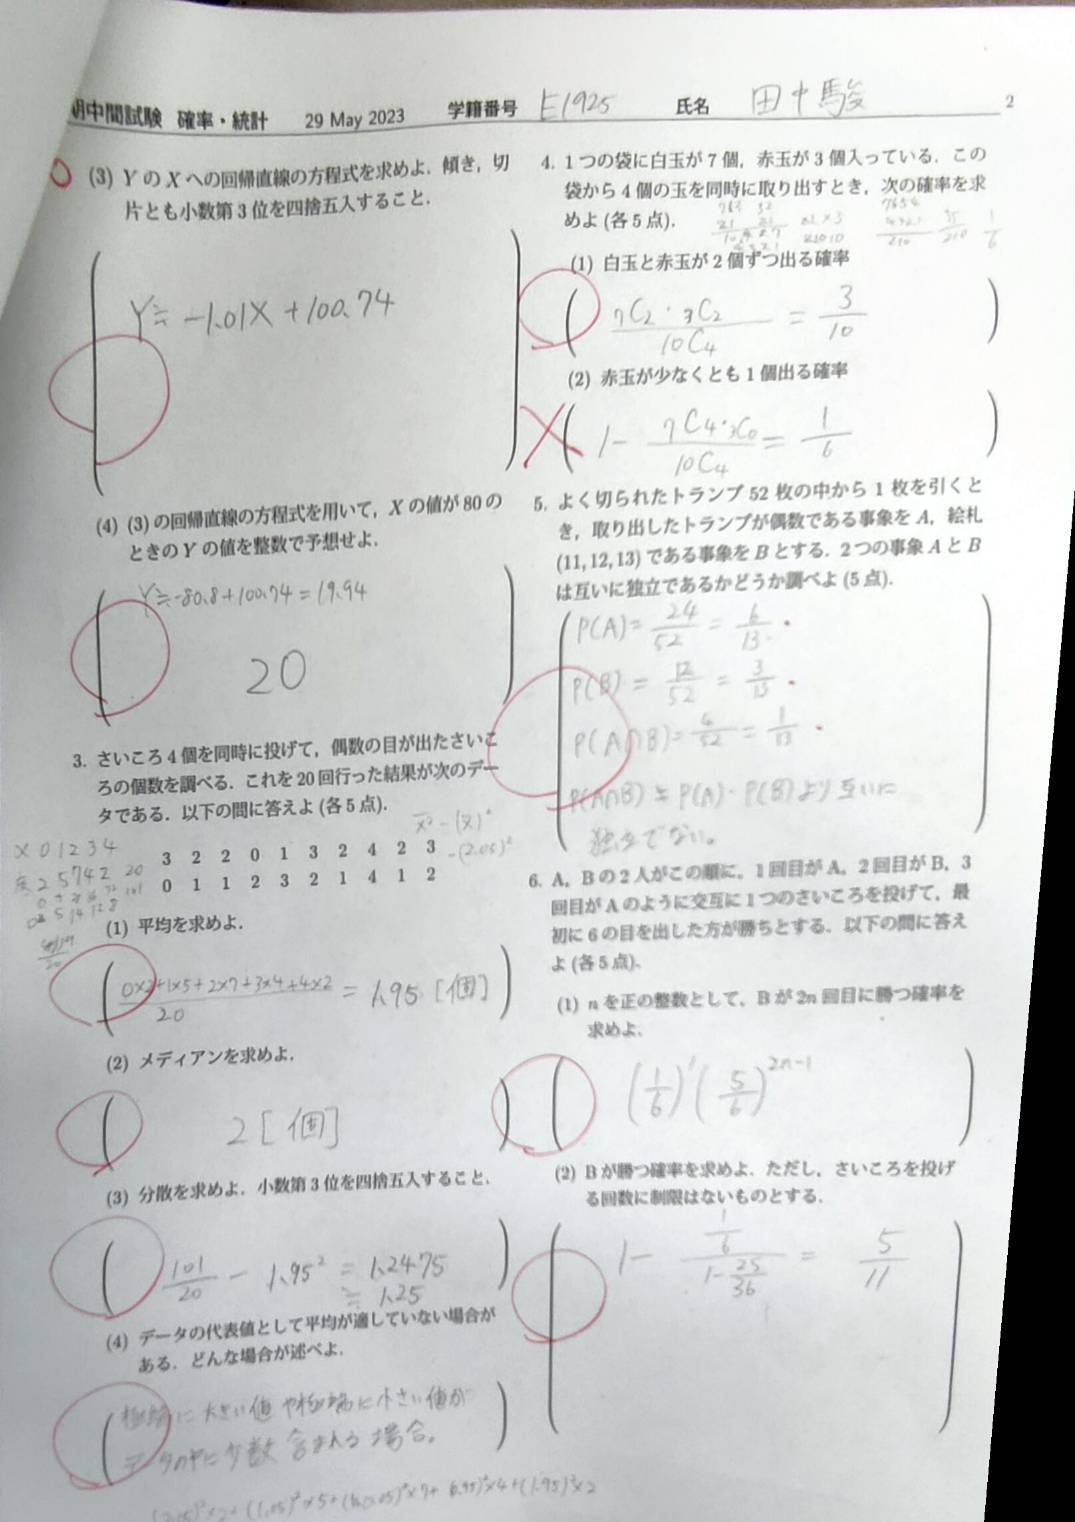 期中間試験 確率・統計 29 May 2023 学籍番号 E1925 氏名 田中駿 2
(3) Y の X への回帰直線の方程式を求めよ．傾き，切
片とも小数第 3 位を四捨五入すること．
Y≒ -1.01X +100.74
(4) (3) の回帰直線の方程式を用いて，X の値が 80 の
ときの Y の値を整数で予想せよ．
Y≒-80.8+100.74=19.94
20
3. さいころ 4 個を同時に投げて，偶数の目が出たさいこ
ろの個数を調べる．これを 20 回行った結果が次のデー
タである．以下の問に答えよ (各 5 点)．
X 0 1 2 3 4
2 5 7 4 2 20
3 2 2 0 1 3 2 4 2 3
0 1 1 2 3 2 1 4 1 2
(1) 平均を求めよ．
(0×2+1×5+2×7+3×4+4×2)/20 = 1.95 [個]
(2) メディアンを求めよ．
2 [個]
(3) 分散を求めよ．小数第 3 位を四捨五入すること．
101/20 - 1.95² = 1.2475
≒ 1.25
(4) データの代表値として平均が適していない場合が
ある．どんな場合が述べよ．
極端に大きい値や極端に小さい値が
データの中に少数含まれる場合。
4. 1 つの袋に白玉が 7 個，赤玉が 3 個入っている．この
袋から 4 個の玉を同時に取り出すとき，次の確率を求
めよ (各 5 点)．
(1) 白玉と赤玉が 2 個ずつ出る確率
7C2・3C2/10C4 = 3/10
(2) 赤玉が少なくとも 1 個出る確率
1- 7C4・3C0/10C4 = 1/6
5. よく切られたトランプ 52 枚の中から 1 枚を引くと
き，取り出したトランプが偶数である事象を A，絵札
(11,12,13) である事象を B とする．2 つの事象 A と B
は互いに独立であるかどうか調べよ (5 点)．
P(A)= 24/52 = 6/13
P(B) = 12/52 = 3/13
P(A∩B)= 4/52 = 1/13
P(A∩B) ≠ P(A)・P(B) より 互いに
独立でない。
6. A，B の 2 人がこの順に，1 回目が A，2 回目が B，3
回目が A のように交互に 1 つのさいころを投げて，最
初に 6 の目を出した方が勝ちとする．以下の問に答え
よ (各 5 点)．
(1) n を正の整数として，B が 2n 回目に勝つ確率を
求めよ．
(1/6)¹(5/6)²ⁿ⁻¹
(2) B が勝つ確率を求めよ．ただし，さいころを投げ
る回数に制限はないものとする．
1- (1/6)/(1-25/36) = 5/11